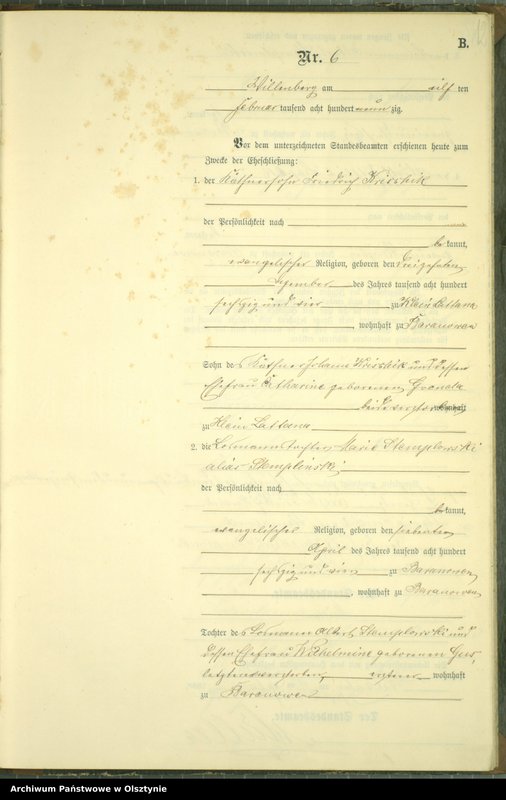 B.
Nr. 6
Willenberg am eilf ten
Februar tausend acht hundert neunzig.
Vor dem unterzeichneten Standesbeamten erschienen heute zum
Zwecke der Eheschließung:
1. der Käthnersohn Friedrich
der Persönlichkeit nach
bekannt,
evangelischer Religion, geboren den dreizehnten
Dezember des Jahres tausend acht hundert
sechzig und vier zu Klein Lattana
, wohnhaft zu Baranowen
Sohn des Käthner Johann und dessen
Ehefrau Catharine geborenen
beide verstorben wohnhaft
zu Klein Lattana
2. die Losmannstochter Marie Stemplowski
alias Stemplinski
der Persönlichkeit nach
bekannt,
evangelischer Religion, geboren den siebenten
April des Jahres tausend acht hundert
sechzig und vier zu Baranowen
, wohnhaft zu Baranowen
Tochter des Losmann Albert Stemplowski und
dessen Ehefrau Wilhelmine geborenen
letztere verstorben, ersterer wohnhaft
zu Baranowen
Archiwum Państwowe w Olsztynie